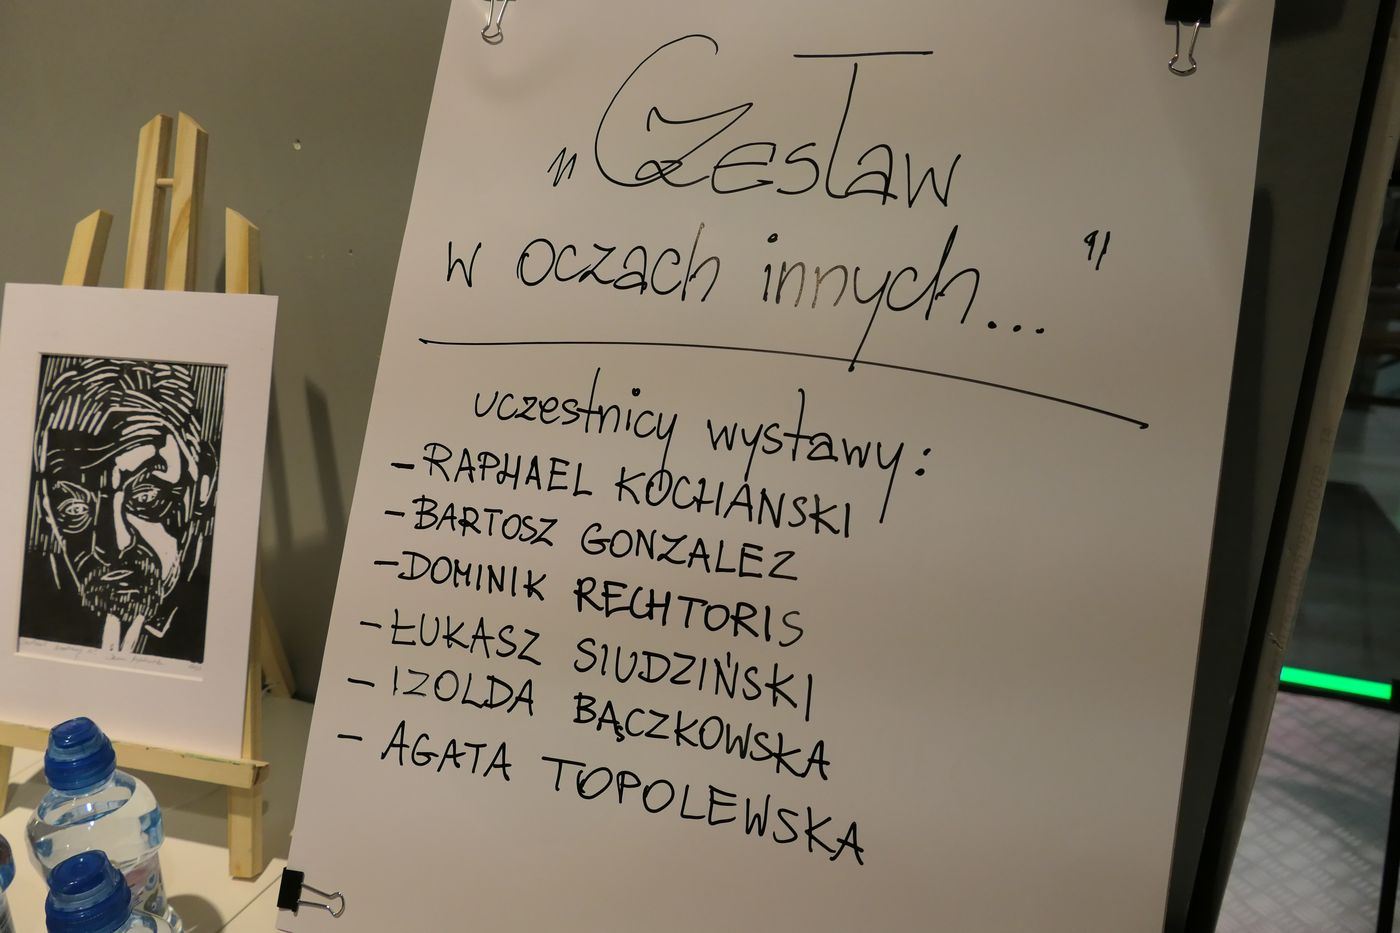 „Czesław
w oczach innych..."
uczestnicy wystawy:
- RAPHAEL KOCHAŃSKI
- BARTOSZ GONZALEZ
- DOMINIK RECHTORIS
- ŁUKASZ SIUDZIŃSKI
- IZOLDA BĄCZKOWSKA
- AGATA TOPOLEWSKA